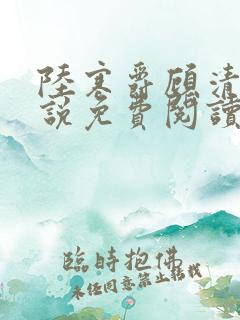 陸寒爵顧清
說免費閱讀
臨時抱佛
未经同意禁止转载